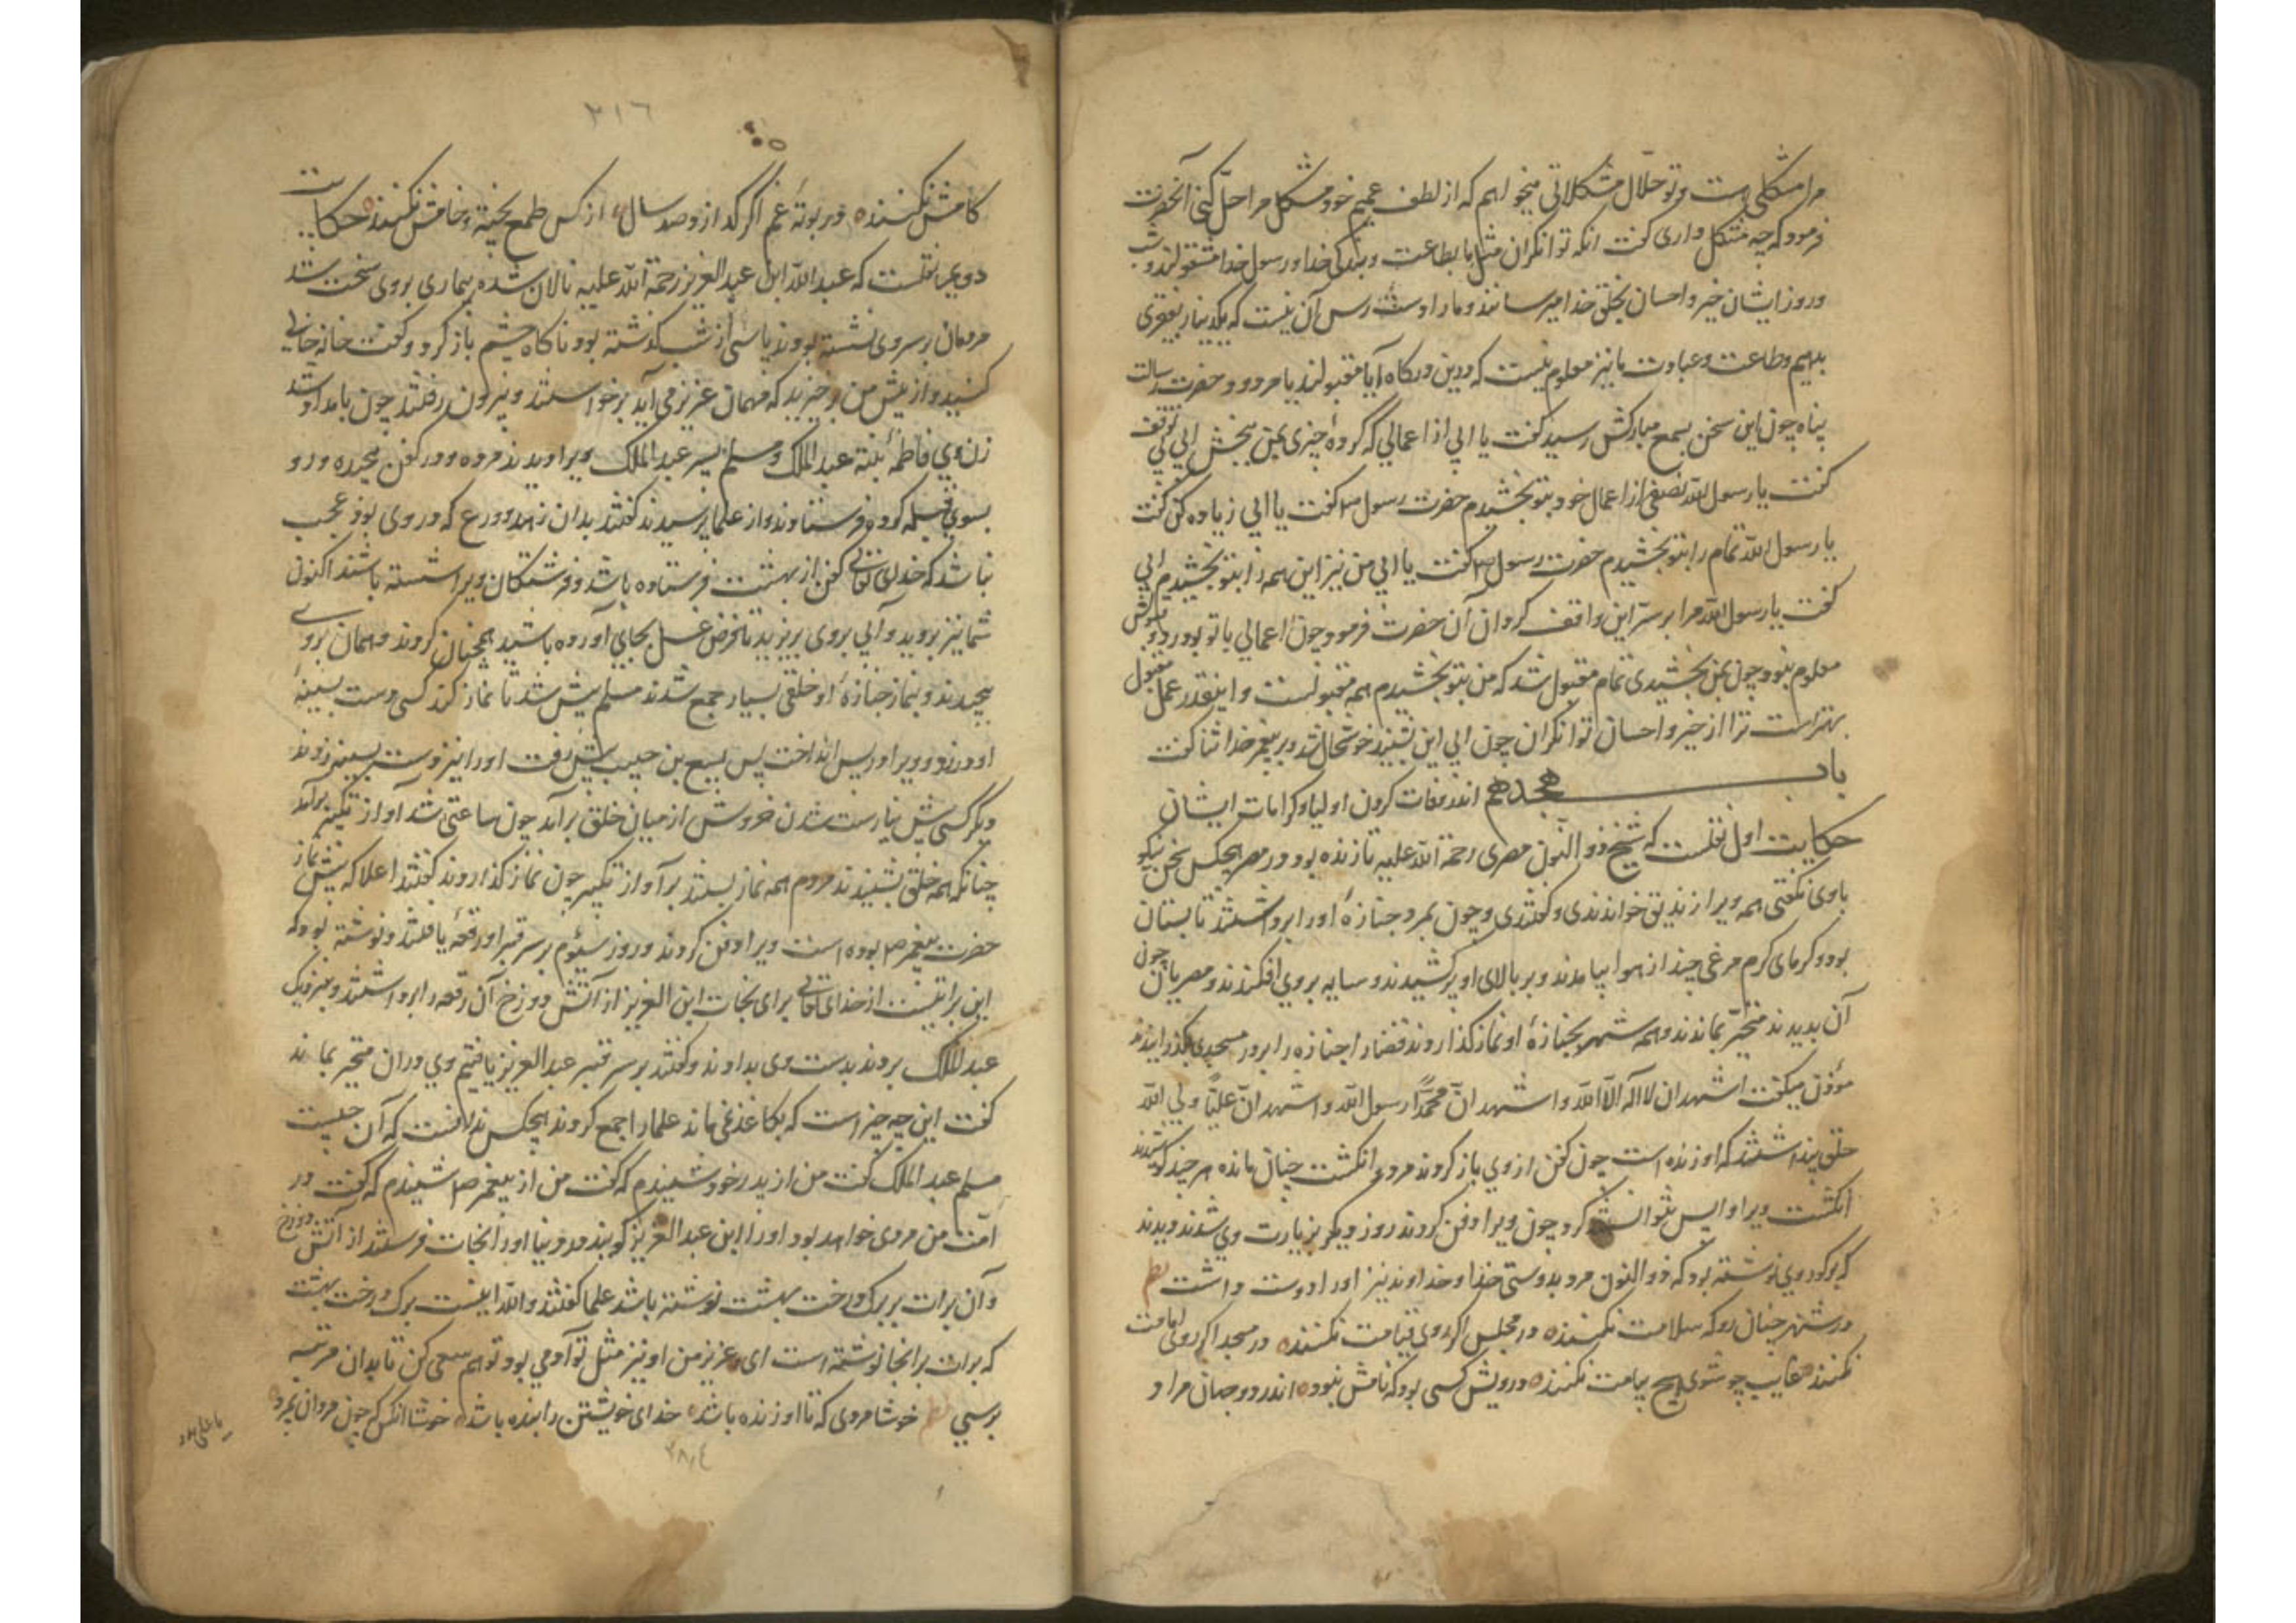 مرا مشکلی هست و تو حلال مشکلاتی میخواهم که از لطف عمیم خود مشکل مرا حل کنی آنحضرت
فرمود که چه مشکل داری گفت انکه توانکران مثل ما بطاعت و بندکی خدا و رسول خدا مشغولند و شب
و روز ایشان خیر و احسان بخلق خدا میرسانند و ما را دست رس آن نیست که یکدینار بفقری
بدهیم و طاعت و عبادت ما نیز معلوم نیست که درین درکاه آیا مقبولند یا مردود حضرت رسالت
پناه چون این سخن بسمع مبارکش رسید گفت یا ابی از اعمالی که کردهٔ چیزی بمن ببخش ابی بی توقف
گفت یا رسول الله نصفی از اعمال خود بتو بخشیدم حضرت رسول ص گفت یا ابی زیاده کن گفت
یا رسول الله تمام را بتو بخشیدم حضرت رسول ص گفت یا ابی من نیز این همه را بتو بخشیدم ابی
گفت یا رسول الله مرا بر سر این واقف کردان آن حضرت فرمود چون اعمالی با تو بود رد و قبولش
معلوم نبود چون بمن بخشیدی تمام مقبول شد که من بتو بخشیدم همه مقبولست و اینقدر عمل مقبول
بهتر است ترا از خیر و احسان توانکران چون ابی این بشنید خوشحال شد و بر پیغمبر خدا ثنا گفت
باب هجدهم اندر وفات کردن اولیا و کرامات ایشان
حکایت اول نقلست که شیخ ذو النون مصری رحمة الله علیه تا زنده بود در مصر هیچکس سخن نیکو
با وی نکفتی همه ویرا زندیق خواندندی و کفتندی و چون بمرد جنازهٔ او را برداشتند تابستان
بود و کرمای کرم مرغی چند از هوا بیامدند و بر بالای او پر کشیدند و سایه بروی افکندند و مصریان چون
آن بدیدند متحیر بماندند و همه شهر بجنازهٔ او نماز کذاردند قضا را جنازه را بر در مسجدی بکذرانیدند
مؤذن میکفت اشهد ان لا اله الا الله و اشهد ان محمدا رسول الله و اشهد ان علیا ولی الله
خلق پنداشتند که او زنده است چون کفن از وی باز کردند مرده انکشت چنان مانده هر چند کوشیدند
انکشت ویرا واپس نتوانستند کرد چون ویرا دفن کردند روز دیکر بزیارت وی شدند دیدند
که بر کور وی نوشته بود که ذو النون مرد بدوستی خدا و خداوند نیز او را دوست داشت نظم
در شهر چنان رو که سلامت نکنند در مجلس اکر روی قیامت نکنند در مسجد اکر روی امامت
نکنند غایب چو شوی هیچ پیامت نکنند درویش کسی بود که نامش نبود اندر دو جهان مراد
٣١٦
کامش نکنند در بوتهٔ غم اکر کدازد صد سال از کس طمع پخته و خامش نکنند حکایت
دویم نقلست که عبد الله ابن عبد العزیز رحمة الله علیه نالان شده بیماری بروی سخت شد
مردمان بر سر وی نشسته بودند پاسی از شب کذشته بود ناکاه چشم باز کرد و کفت خانه خالی
کنید و از پیش من برخیزید که مهمان عزیز می آید برخواستند و بیرون رفتند چون بامداد شد
زن وی فاطمه بنت عبد الملک و مسلم پسر عبد الملک ویرا دیدند مرده و در کفن پیچیده و رو
بسوی قبله کرده فرستادند و از علما پرسیدند کفتند بدان زهد و ورع که در وی بود عجب
نباشد که خدای تعالی کفن از بهشت فرستاده باشد و فرشتکان ویرا شسته باشند اکنون
شما نیز بروید و آبی بروی بریزید تا فرض غسل بجای آورده باشید همچنان کردند و همان بروی
پیچیدند و بنماز جنازهٔ او خلقی بسیار جمع شدند مسلم پیش شد تا نماز کند کسی دست بسینهٔ
او در زد و ویرا در پس انداخت پس ربیع بن حبیب پیش رفت او را نیز دست بسینه زدند
دیگر کسی پیش نیارست شدن خروش از میان خلق برآمد چون ساعتی شد آواز تکبیر برآمد
چنانکه همه خلق بشنیدند مردم همه نماز ببستند بر آواز تکبیر چون نماز کذاردند کفتند اعلا که پیش نماز
حضرت پیغمبر ص بوده است ویرا دفن کردند و روز سیوم بر سر قبر او رقعه یافتند و نوشته بود که
این براتیست از خدای تعالی برای نجات ابن العزیز از آتش دوزخ آن رقعه را برداشتند و بنزدیک
عبد الملک بردند بدست وی بدادند و کفتند بر سر قبر عبد العزیز یافتیم وی در ان متحیر بماند
کفت این چه چیز است که بکاغذ نمی ماند علما را جمع کردند هیچکس ندانست که آن چیست
مسلم عبد الملک کفت من از پدر خود شنیدم که کفت من از پیغمبر ص شنیدم که کفت در
امت من مردی خواهد بود او را ابن عبد العزیز کویند در دنیا او را نجات فرستند از آتش دوزخ
و آن برات بر برک درخت بهشت نوشته باشد علما کفتند والله اینست برک درخت بهشت
که برات بر انجا نوشته است ای عزیز من او نیز مثل تو آدمی بود تو هم سعی کن تا بدان مرتبه
برسی نظم خوشا مردی که تا او زنده باشد خدای خویشتن را بنده باشد خوشا انکس که چون مردان بمرد
٣٨٤